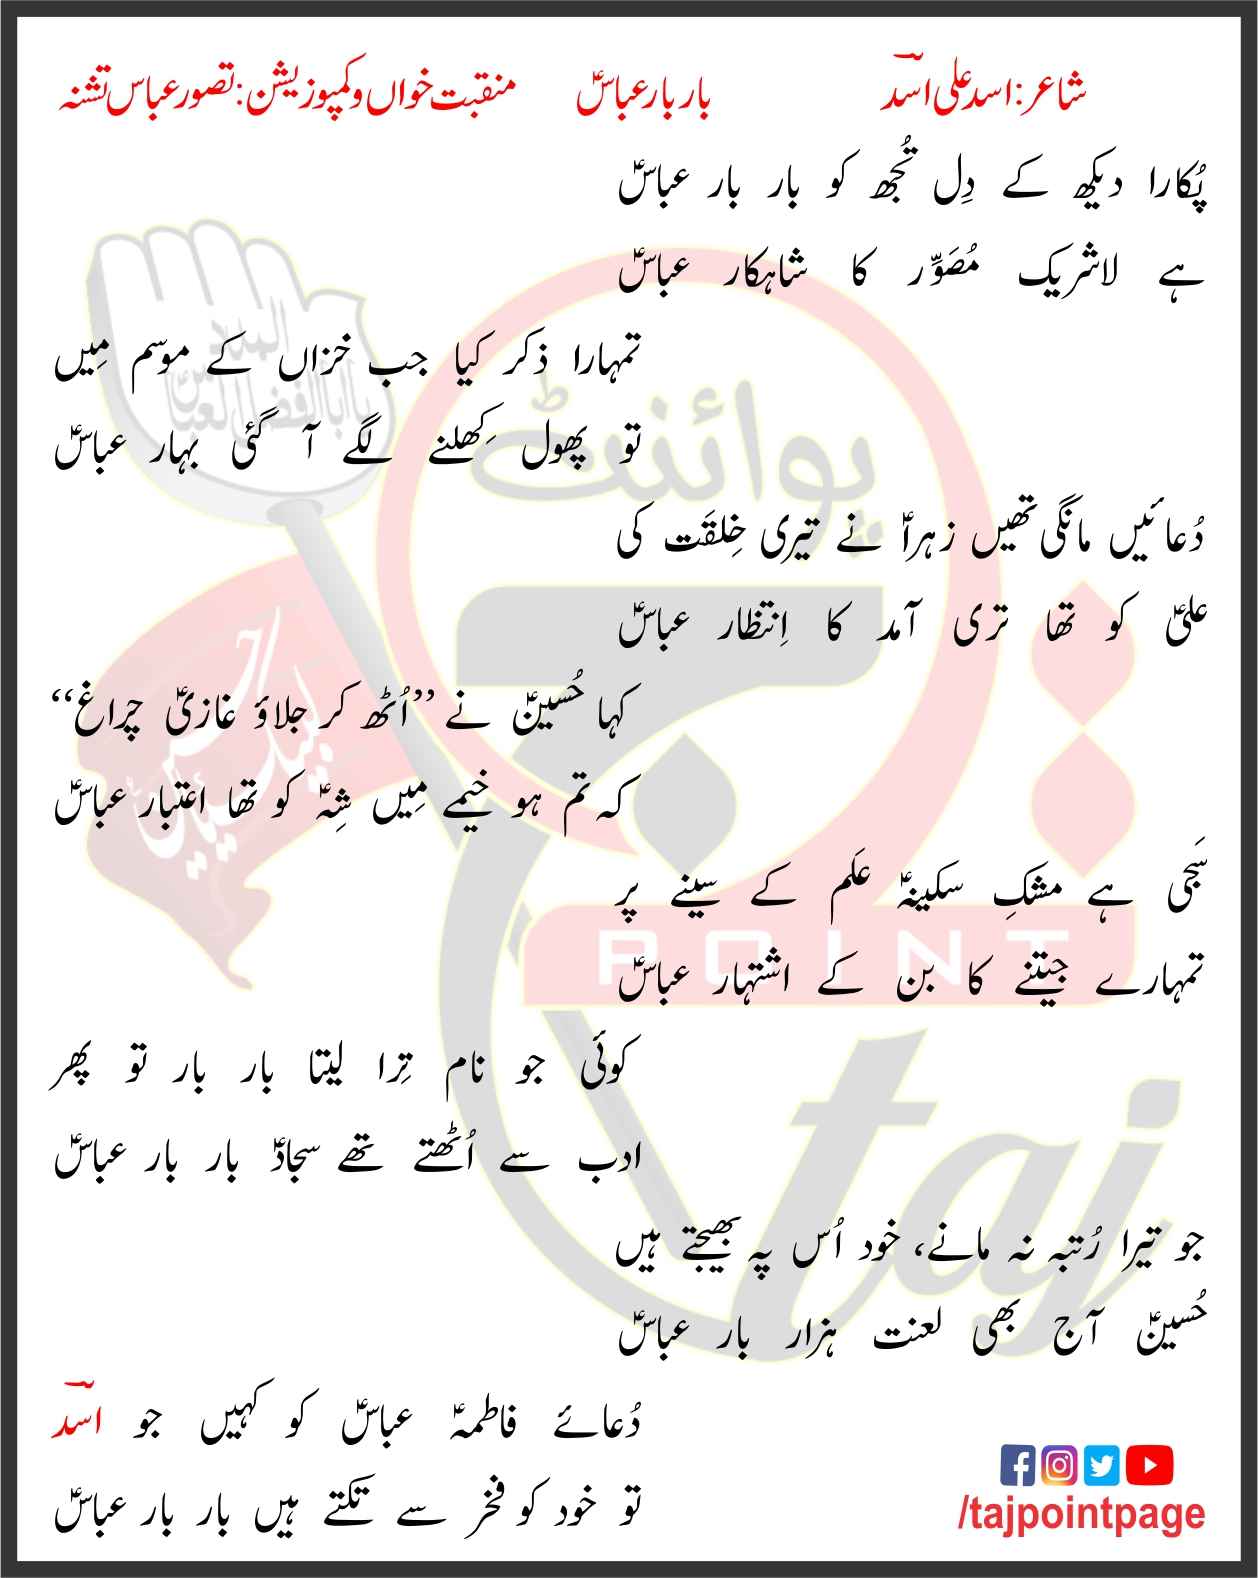 شاعر: اسد علی اسدؔ    بار بار عباسؑ    منقبت خواں و کمپوزیشن: تصور عباس تشنہ
پُکارا دیکھ کے دِل تُجھ کو بار بار عباسؑ
ہے لاشریک مُصَوِّر کا شاہکار عباسؑ
تمہارا ذکر کیا جب خزاں کے موسم مِیں
تو پھول کِھلنے لگے آ گئی بہار عباسؑ
دُعائیں مانگی تھیں زہراؑ نے تیری خِلقَت کی
علیؑ کو تھا تری آمد کا اِنتظار عباسؑ
کہا حُسینؑ نے ”اُٹھ کر جلاؤ غازیؑ چراغ“
کہ تم ہو خیمے مِیں شِہؑ کو تھا اعتبار عباسؑ
سَجی ہے مشکِ سکینہؑ عَلم کے سینے پر
تمہارے جیتنے کا بن کے اشتہار عباسؑ
کوئی جو نام تِرا لیتا بار بار تو پھر
ادب سے اُٹھتے تھے سجادؑ بار بار عباسؑ
جو تیرا رُتبہ نہ مانے، خود اُس پہ بھیجتے ہیں
حُسینؑ آج بھی لعنت ہزار بار عباسؑ
دُعائے فاطمہؑ عباسؑ کو کہیں جو اسدؔ
تو خود کو فخر سے تکتے ہیں بار بار عباسؑ
/tajpointpage
پوائنٹ
تاج
POINT
taj
لبیک یا حسین